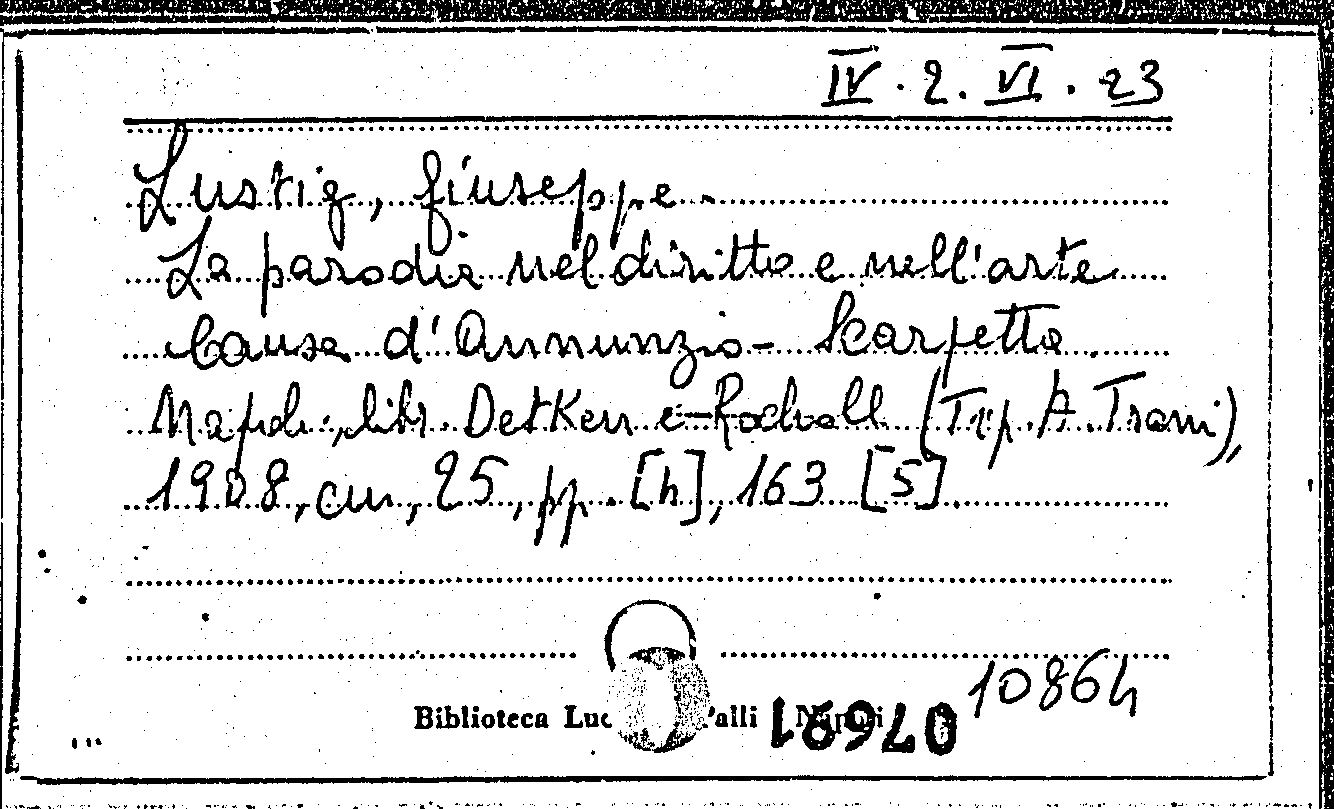 IV. 2. VI. 23
Lustig, Giuseppe.
La parodia nel diritto e nell'arte
Causa d'Annunzio - Scarpetta.
Napoli, libr. Detken e Rocholl (Tip. A. Trani),
1908, cm, 25, pp. [4], 163 [5].
10864
Biblioteca 'alli